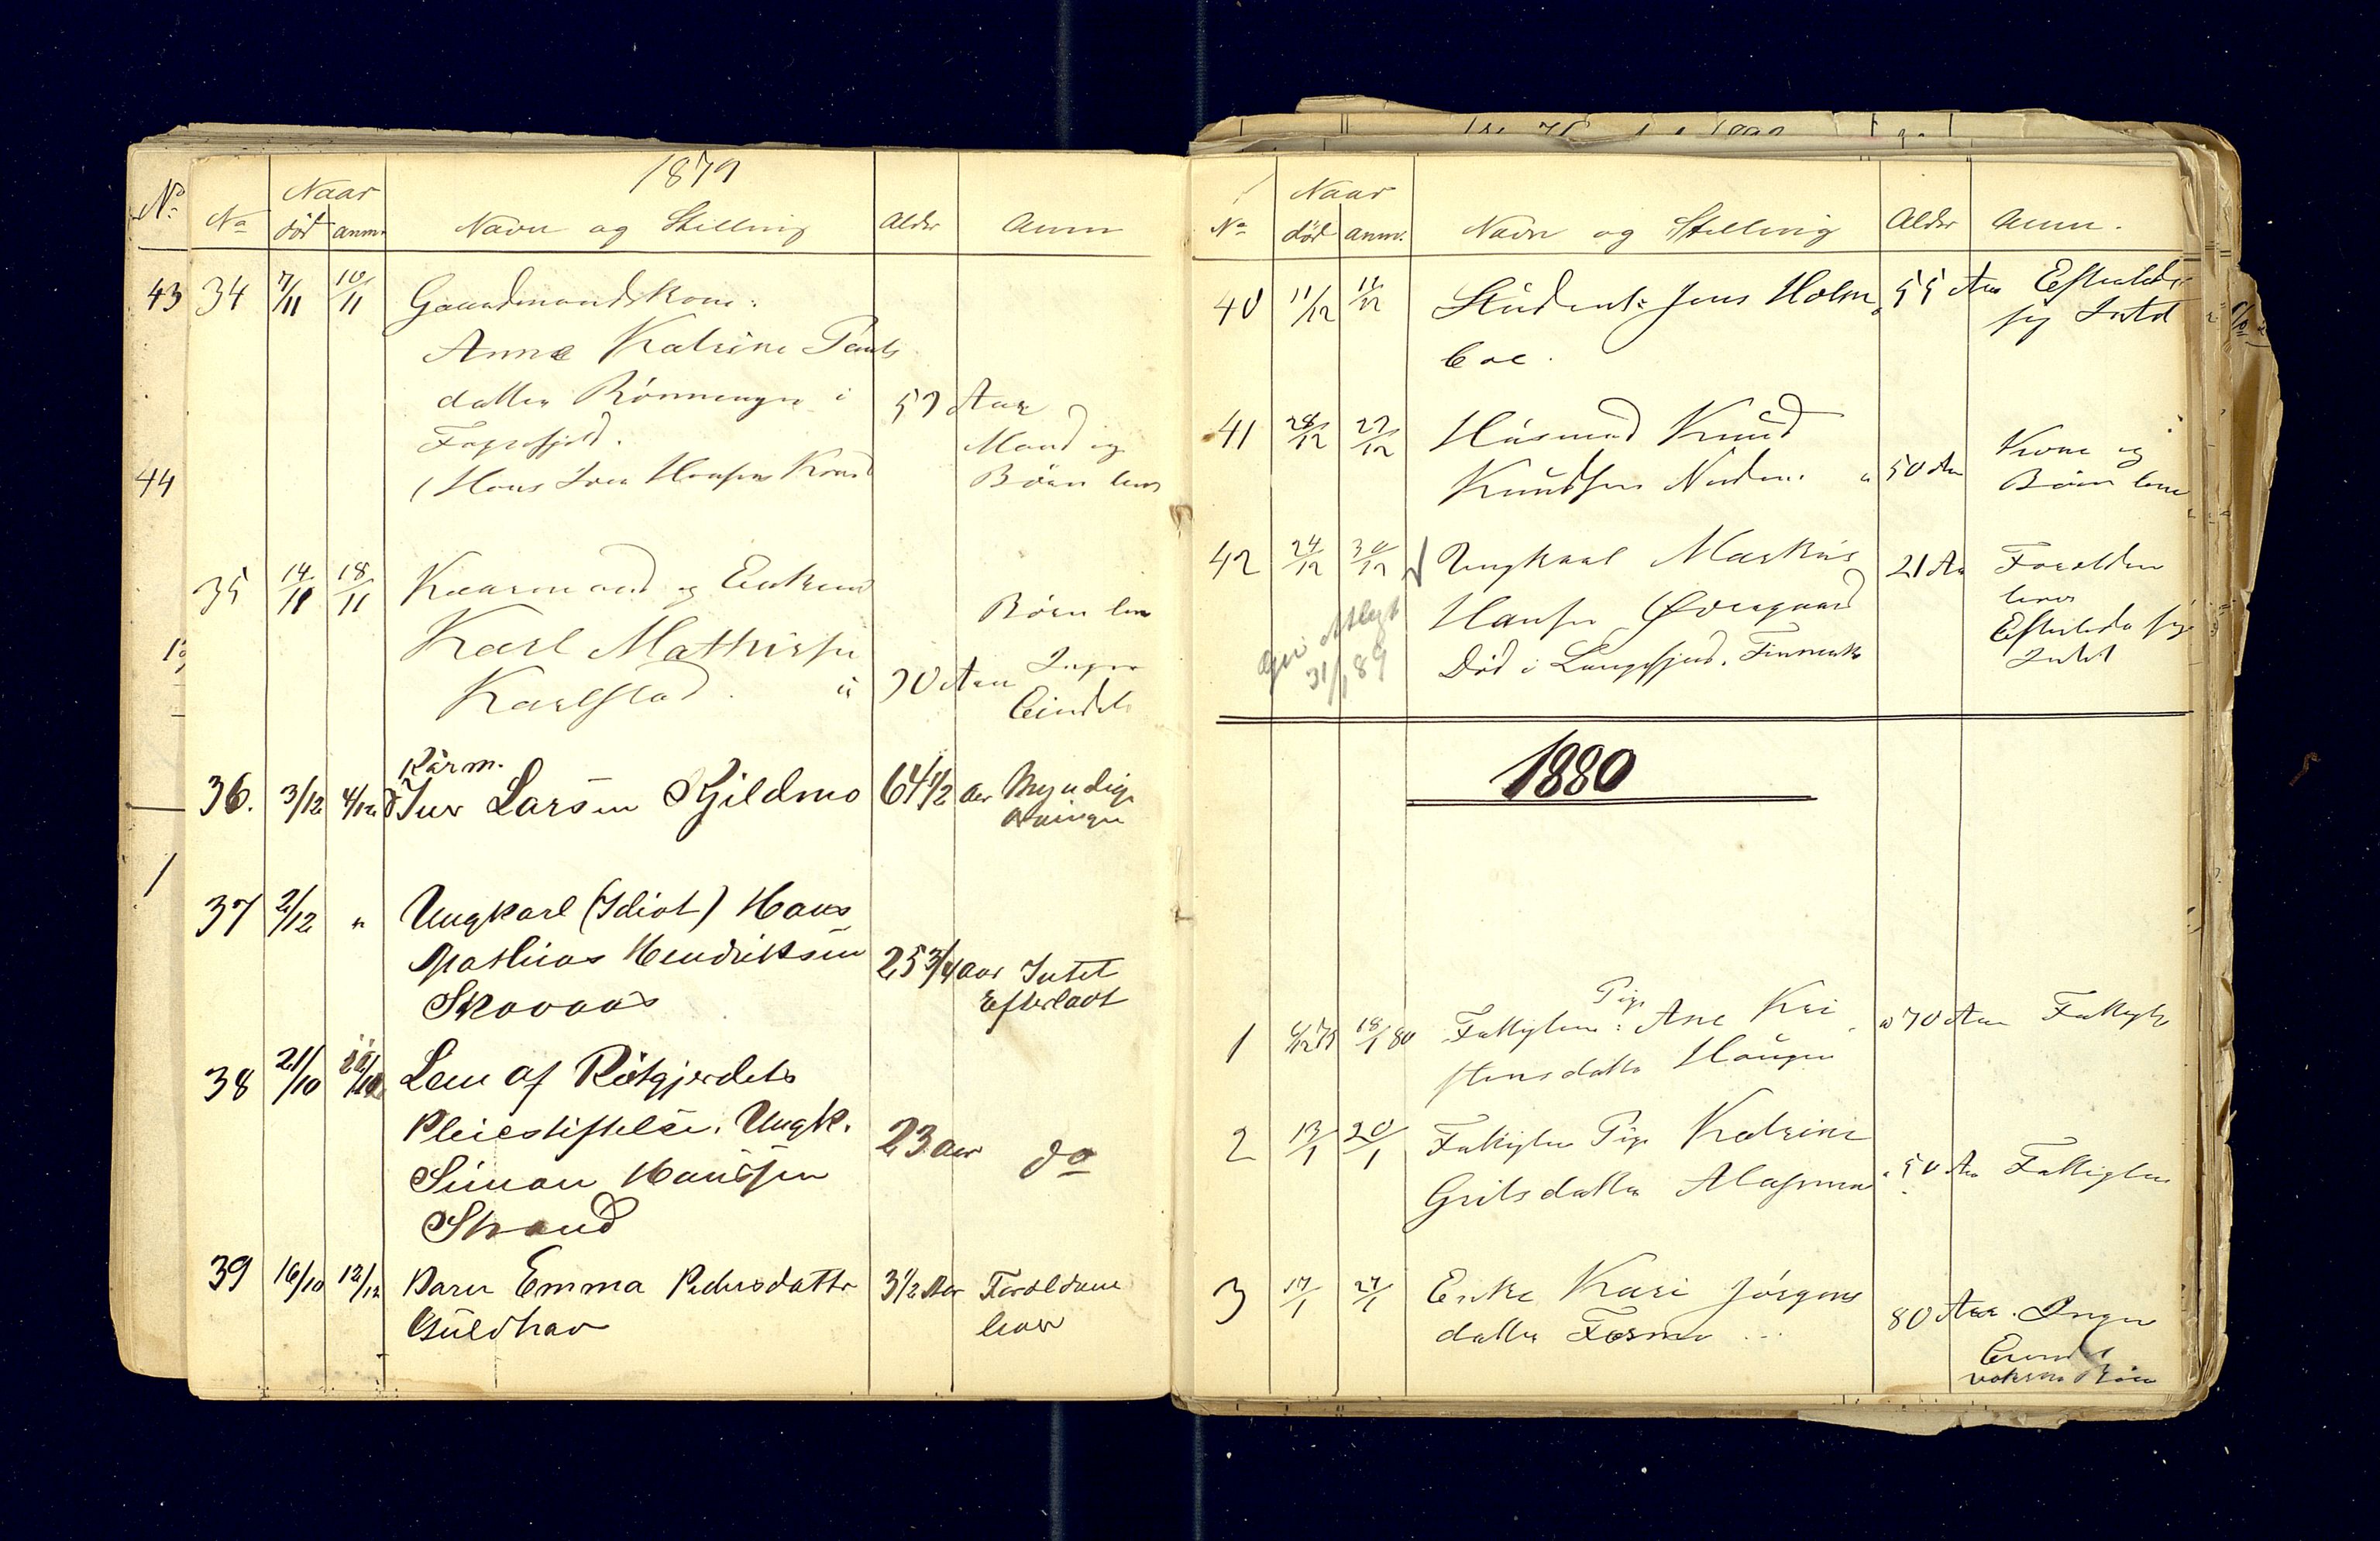 1879
No
No Naar
død anm. Navn og Stilling Alder Anm
43
34 7/11 10/11 Gaardmandskone:
Anna Katrine Pauls
datter Rønningen i
57 Aar
Mand og
(Hans Iver Hansens Kone)
Børn lever
44
35 14/11 18/11 Kaarmand og Enkemand
Karl Mathisen
Karlstad. 70 Aar
Børn lever
Ingen
36. 3/12 4/12 Kårm.
Iver Larsen Kjildmo 64 1/2 Aar Myndige
Arvinger
1
37 2/12 " Ungkarl (Idiot) Hans
Mathias Hendriksen
Skovaas
25 3/4 Aar Intet
Efterladt
38 21/10 Lem af Reitgjerdets
Pleiestiftelse. Ungk.
Simon Hanssen
Strand
23 Aar do
39 16/10 12/12 Barn Emma Pedersdatter
Guldhav
3 1/2 Aar Forældrene
lever
Naar
No død anm. Navn og Stilling Alder Anm.
40 11/12 Student Jens Holm
boe.
55 Aar Efterlader
sig Intet
41 27/12 Husmand Knud
Knudsen
50 Aar
Kone og
Børn lever
42 24/12 30/12 Ungkarl Markus
Hansen Øvergaard
Død i Langfjord. Finmark
21 Aar Forældre
lever
Efterlader sig
Intet
31/1 89
1880
1 18/1 80 Fattiglem: Pige Ane Kri
stensdatter Haugen
70 Aar Fattiglem
2 13/1 20/1 Fattiglem Pige Katrine
Gritsdatter
50 Aar Fattiglem
3 17/1 27/1 Enke Kari Jørgens
datter Fosmo
80 Aar. Ingen
voksne Børn